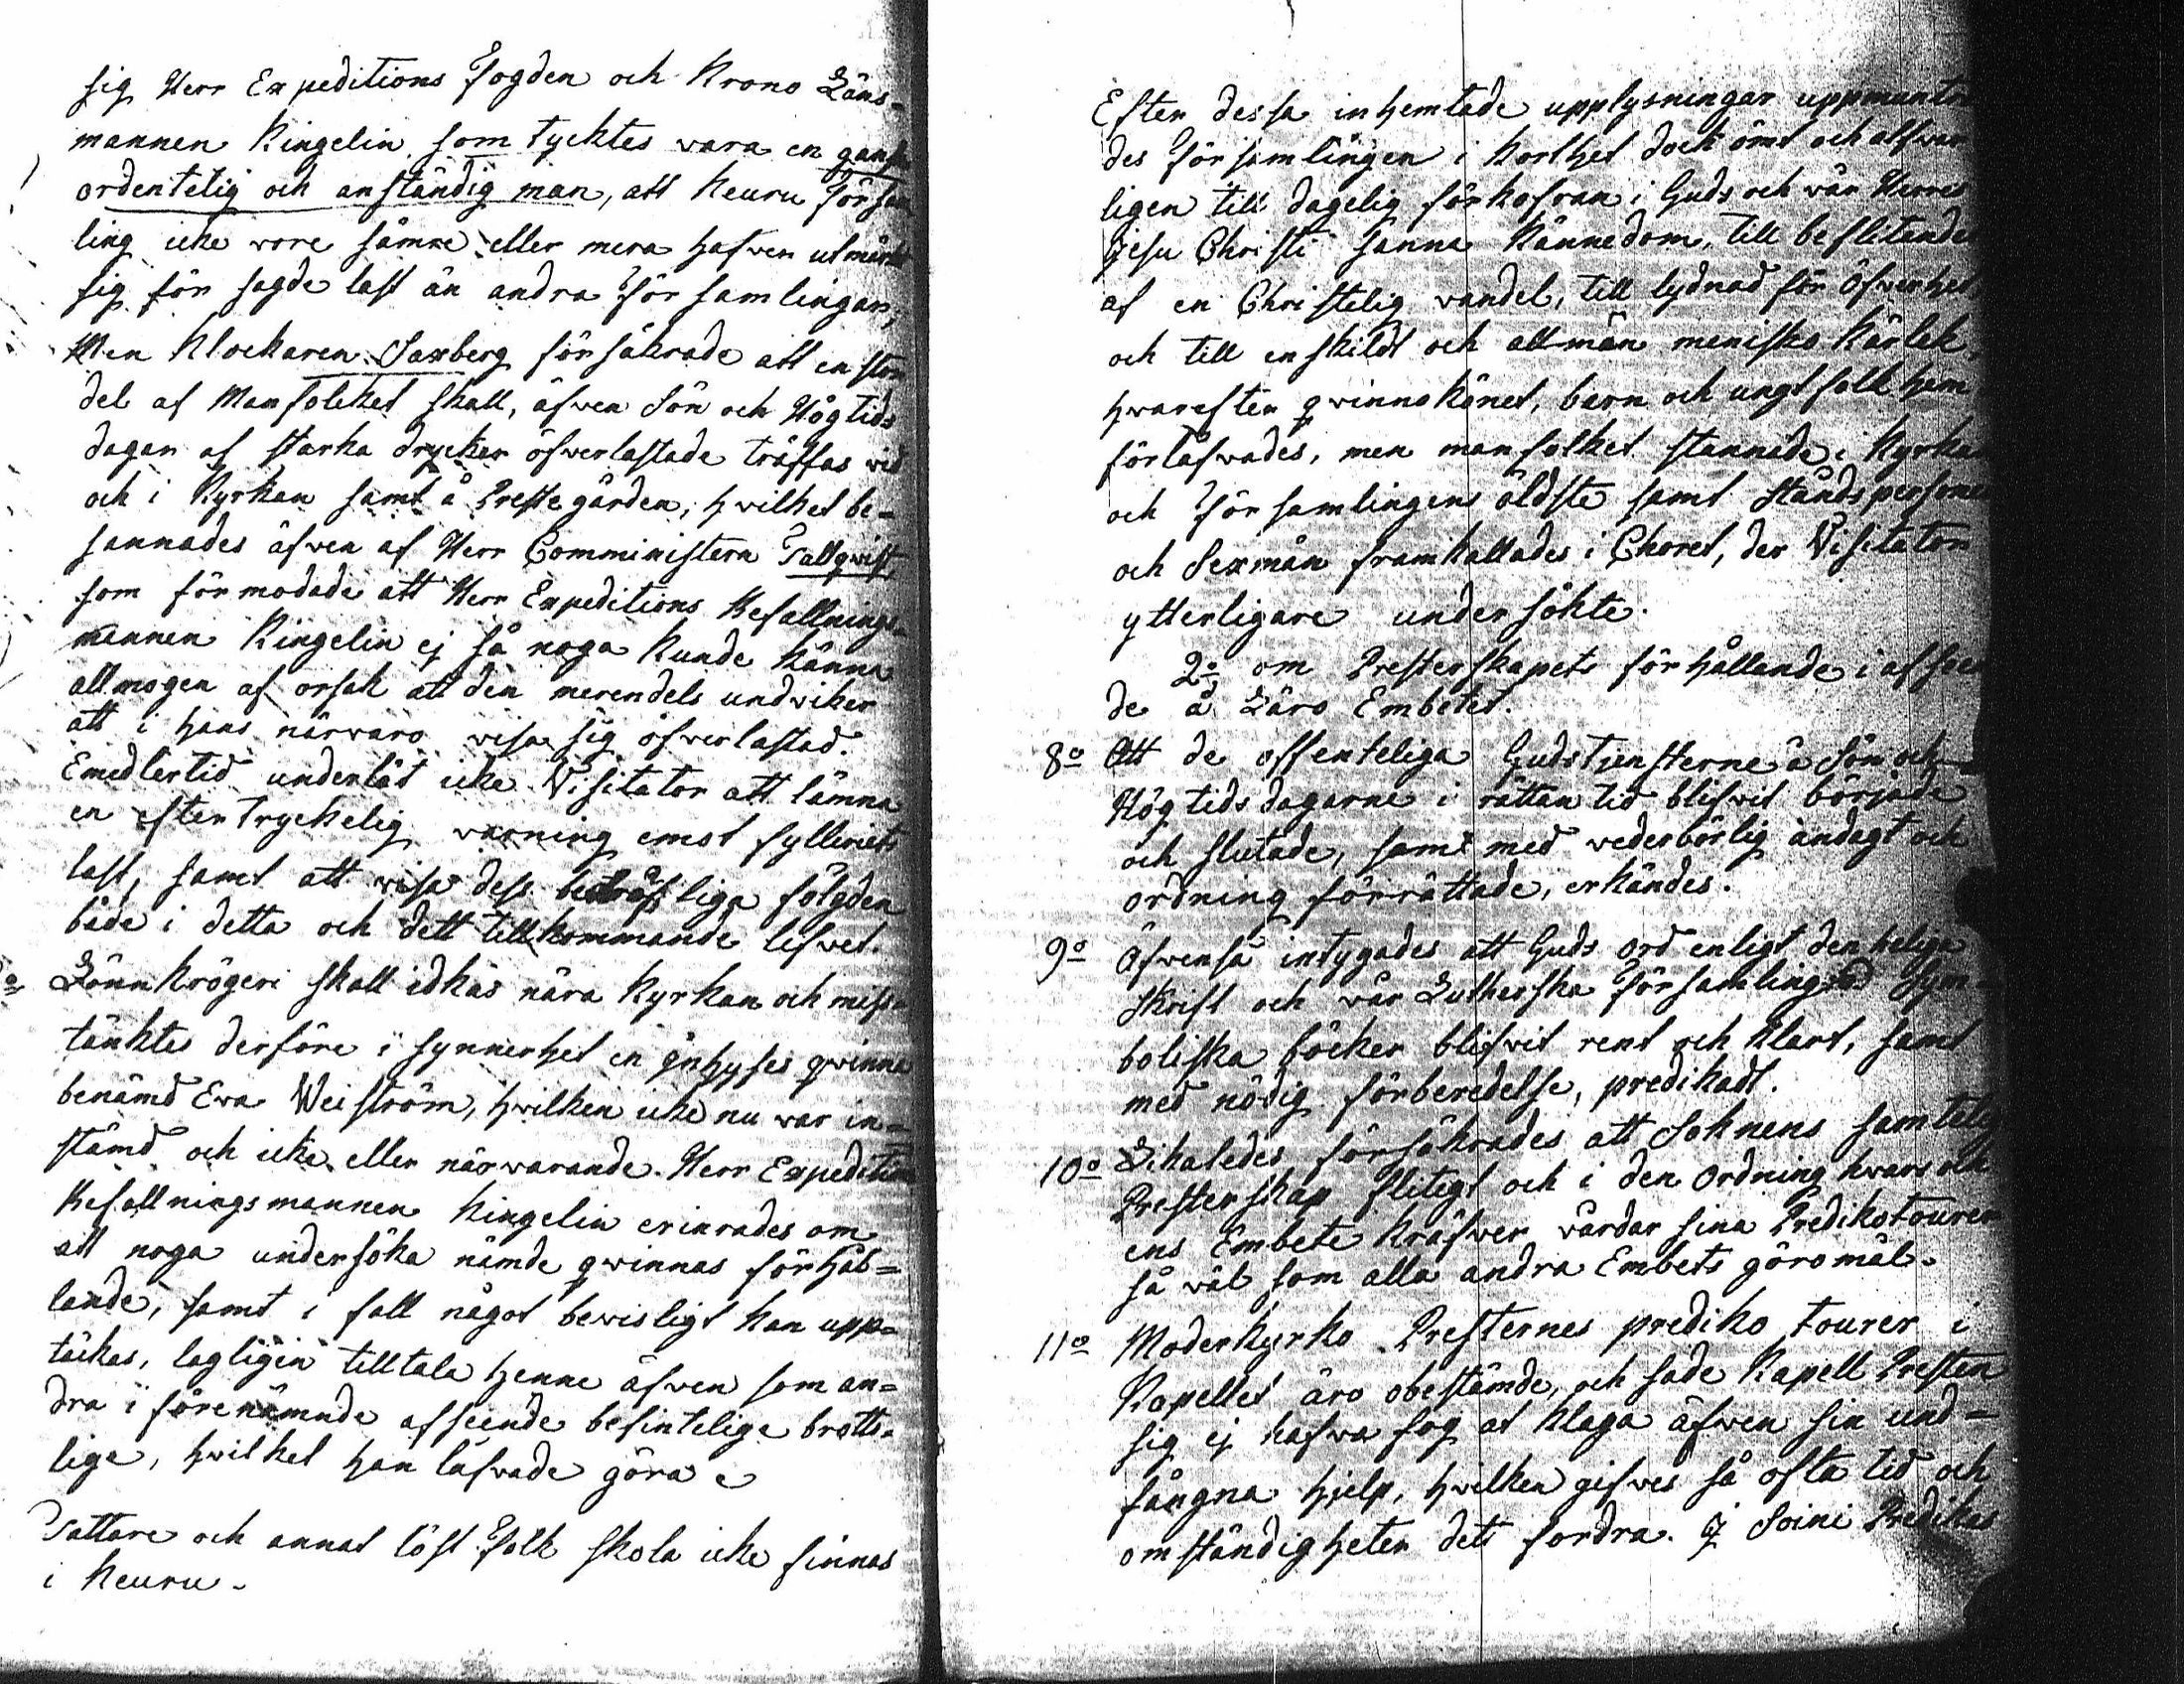 sig Herr Expeditions Fogden och Krono Läns-
mannen Ringelin, som tycktes vara en ganska
ordentelig och anständig man, att Keuru Församm
ling icke vore sämre eller mera hafven utmärkt
sig för sagde last än andra Församlingar,
Men Klockaren Saxberg försäkrade att en stor
del af Manfolket skall, äfven Sön och Högtids
dagar af starka drycker öfverlastade träffas vid
och i Kyrkan samt å Prestegården, hvilket be-
sannades äfven af Herr Comministern Tallqvist
som förmodade att Herr Expeditions Befallnings-
mannen Ringelin ej så noga kunde känna
allmogen af orsak att den merendels undviker
att i hans närvaro visa sig öfverlastad.
Emedlertid underlät icke Visitator att lämna
en eftertryckelig varning emot fylleriets
last, samt att visa dess liga fölgder
både i detta och dett tillkommande lifvet.
Lönnkrögeri skall idkas nära Kyrkan och miss-
tänktes derföre i synnerhet en inhyses qvinna
benämd Eva Weiström, hvilken icke nu var in-
stämd och icke eller närvarande. Herr Expeditions
Befallningsmannen Ringelin erinrades om
att noga undersöka nämde qvinnas förhål-
lande, samt i fall något bevisligt kan upp-
täckas, lagligen tilltala henne äfven som an-
dra i förenämnde afseende befintelige brotts-
lige, hvilket han låfvade göra
Tattare och annat löst folk skola icke finnas
i Keuru.
Efter dessa inhemtade upplysningar uppmuntra
des Församlingen i korthet dock ömt och alfvar
ligen till dagelig förkofran i Guds och vår Herres
Jesu Christi sanna kännedom, till beflitande
af en Christelig vandel, till lydnad för Öfverhet
och till enskildt och allmän menisko kärlek,
hvarefter qvinnokönet, barn och ungt folk hem
förlåfvades, men manfolket stannade i Kyrkan
och Församlingens äldste samt Ståndspersoner
och Sexmän framkallades i Choret, der Visitator
ytterligare undersökte.
2o om Presterskapets förhållande i afseen
de å Läro Embetet.
8o Att de offenteliga Gudstjensterne å Sön och
Högtidsdagarne i rättan tid blifvit började
och slutade, samt med vederbörlig andagt och
ordning förrättade, erkändes.
9o Äfvenså intygades att Guds ord enligt den helige
Skrift och vår Lutherska Församlings Sym-
boliska böcker blifvit rent och klart, samt
med nödig förberedelse, predikadt.
10o Likaledes försäkrades att Soknens samtelig
Presterskap flitigt och i den Ordning hvars och
ens Embete kräfver vårdar sina Predikotourer
så väl som alla andra Embets göromål.
11o Moderkyrko Presternes prediko tourer i
Kapellet äro obestämde, och sade Kapell Presten
sig ej hafva fog at klaga äfven sin und-
fångna hjelp, hvilken gifves så ofta tid och
omständigheter dets fordra. I Soini Predikas